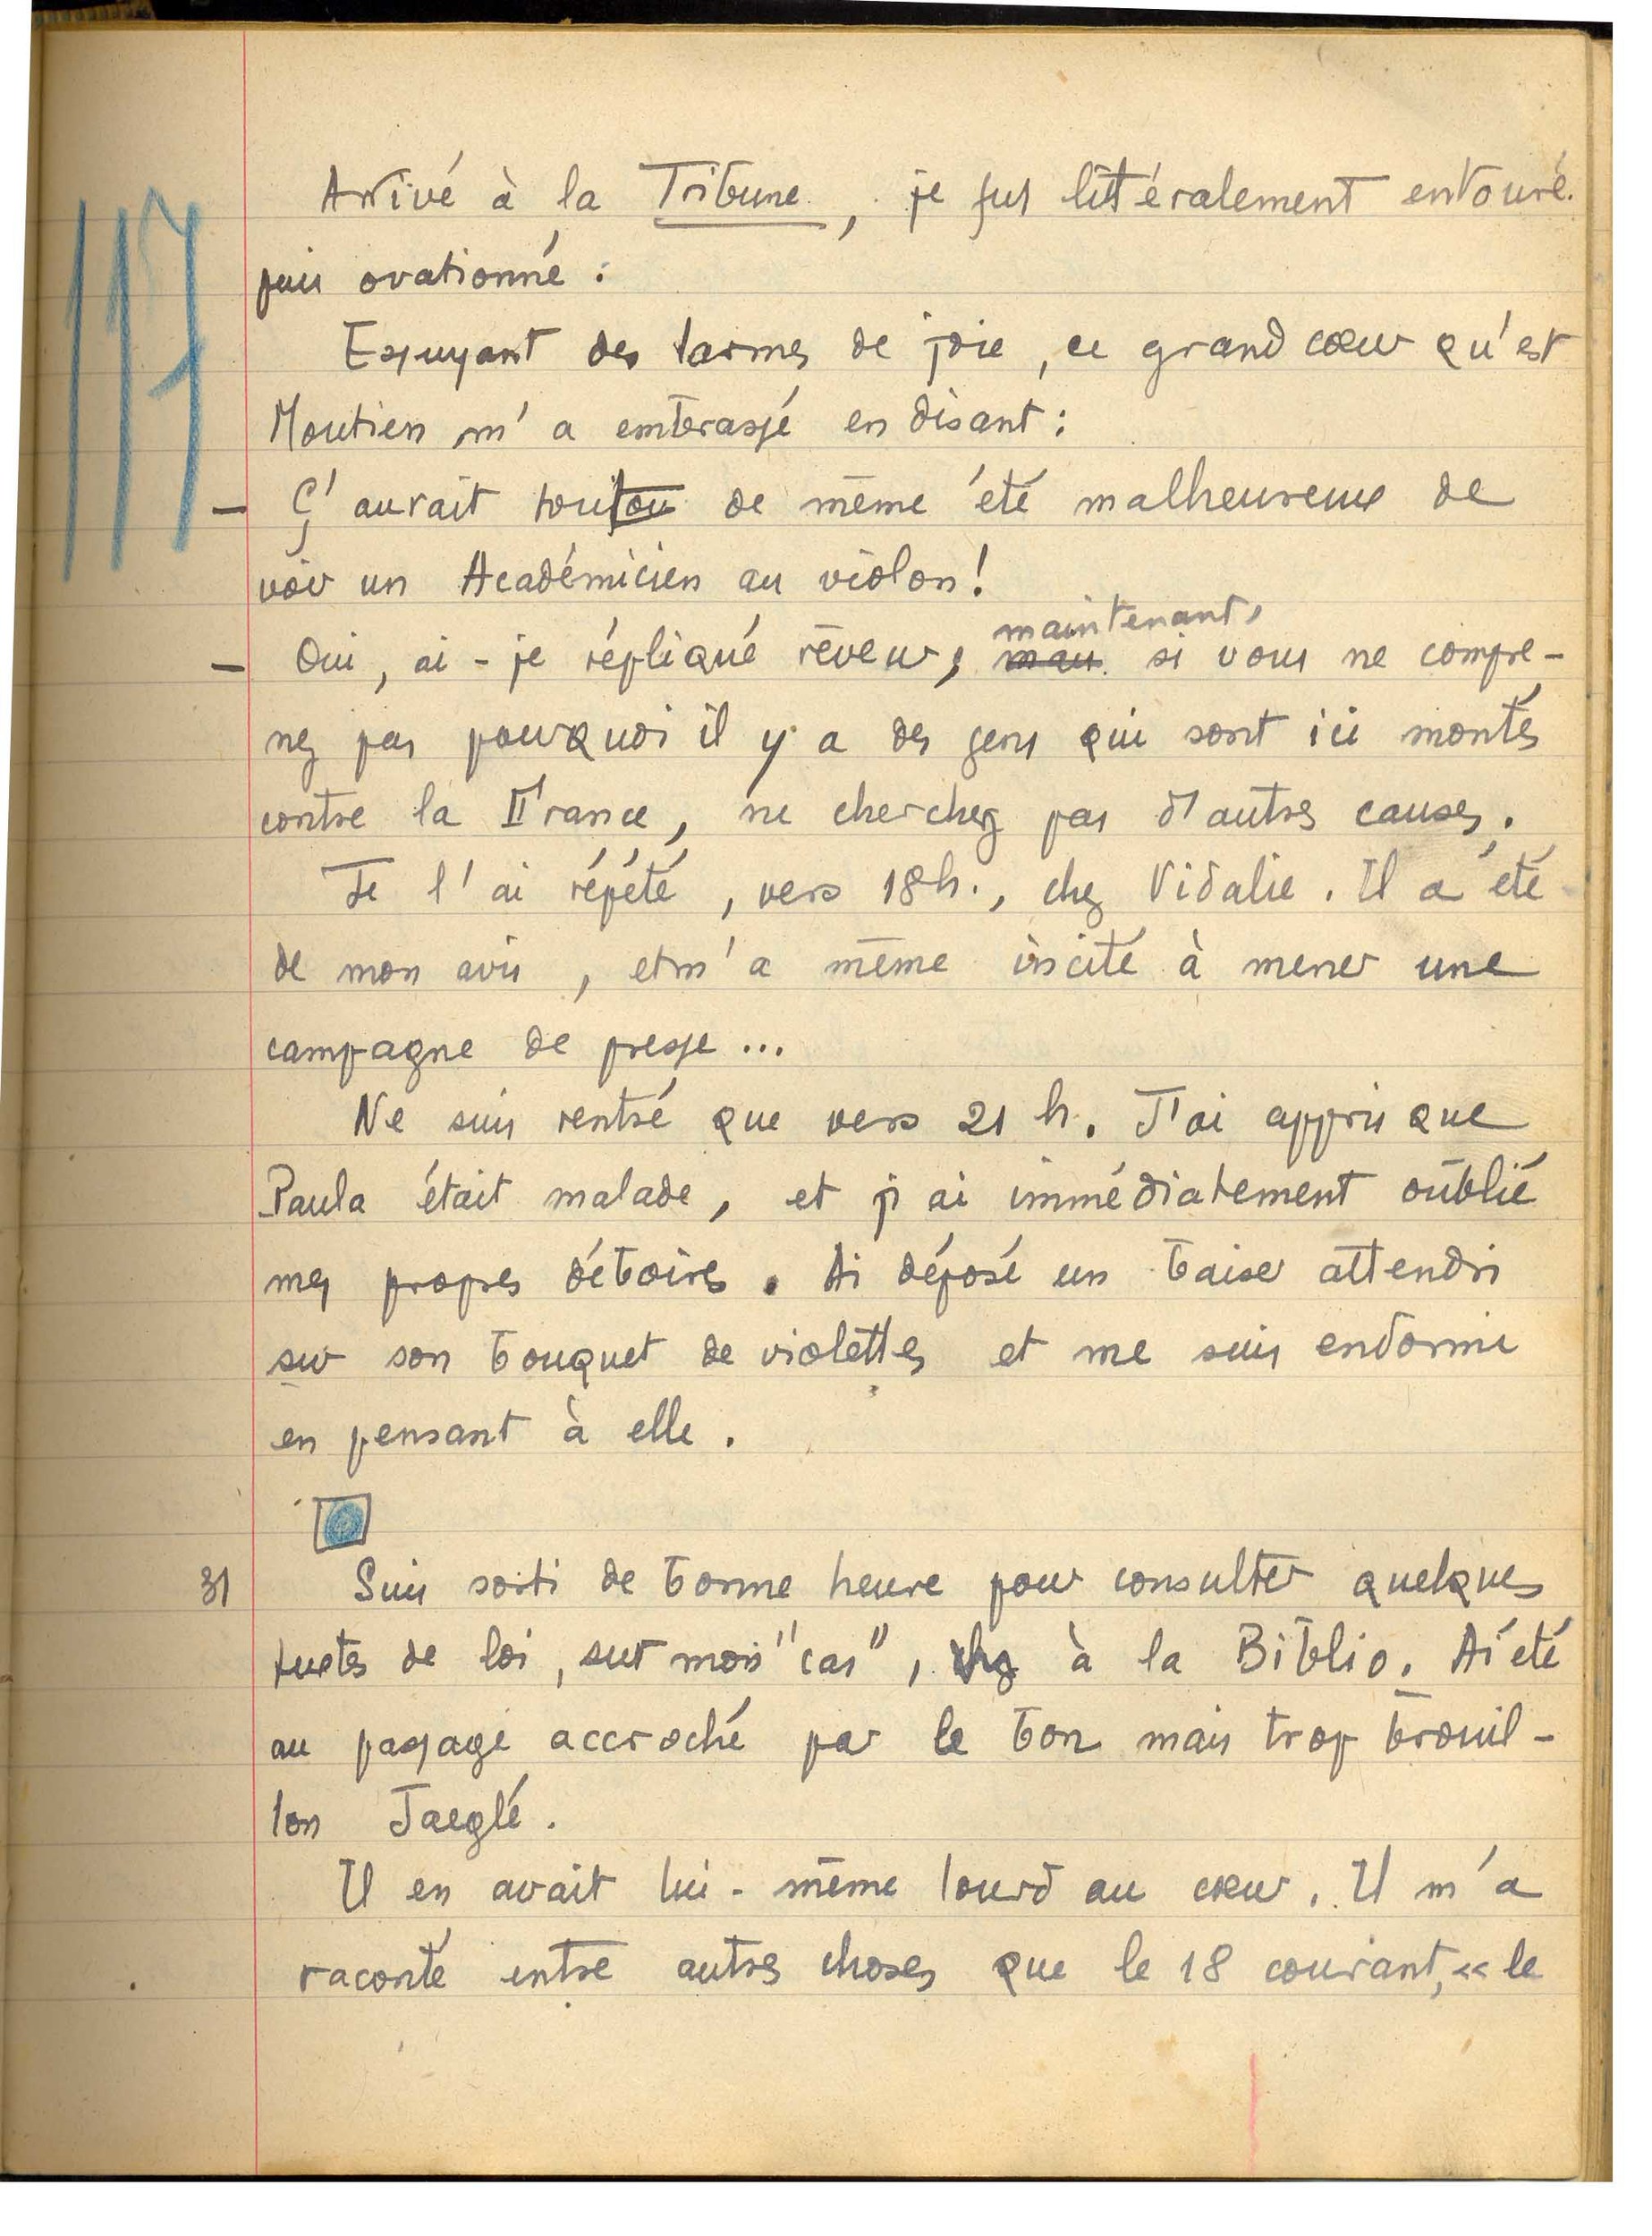 117
Arrivé à la Tribune, je fus littéralement entouré.
puis ovationné :
Essuyant des larmes de joie, ce grand cœur qu'est
Moutien m'a embrassé en disant :
— Ç'aurait tout de même été malheureux de
voir un Académicien au violon !
maintenant,
— Oui, ai-je répliqué rêveur, mais si vous ne compre-
nez pas pourquoi il y a des gens qui sont ici montés
contre la France, ne cherchez pas d'autres causes.
Je l'ai répété, vers 18h., chez Vidalie. Il a été
de mon avis, et m'a même incité à mener une
campagne de presse ...
Ne suis rentré que vers 21 h. J'ai appris que
Paula était malade, et j'ai immédiatement oublié
mes propres déboires. Ai déposé un baiser attendri
sur son bouquet de violettes et me suis endormi
en pensant à elle.
31 Suis sorti de bonne heure pour consulter quelques
textes de loi, sur mon "cas", chez à la Biblio. Ai été
au passage accroché par le bon mais trop brouil-
lon Jaeglé.
Il en avait lui-même lourd au cœur. Il m'a
raconté entre autres choses que le 18 courant, « le